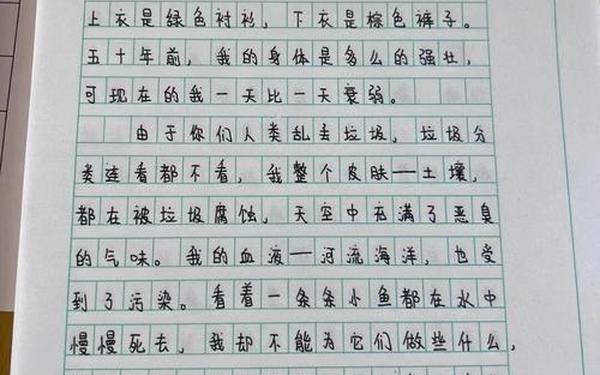 上衣是绿色衬衫，下衣是棕色裤子。
五十年前，我的身体是多么的强壮，
可现在的我一天比一天衰弱。
由于你们人类乱丢垃圾，垃圾分
类连看都不看，我整个皮肤——土壤，
都在被垃圾腐蚀，天空中充满了恶臭
的气味。我的血液——河流海洋，也受
到了污染。看着一条条小鱼都在水中
慢慢死去，我却不能为它们做些什么，